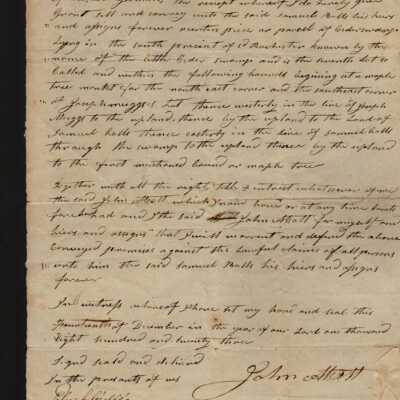 the receipt whereof I do hereby give
Grant sell and convey unto the said Samuel Balls his heirs
and assigns forever a certain piece or parcel of Cedar swamp
Lying in the South precinct of Rochester known by the
name of the little Ceder swamp and is the seventh lot so
Called and within the following bounds begining at a maple
tree markt for the north east corner and the southeast corner
of Joseph meiggs Lot thence westerly in the line of Joseph
Meggs to the upland thence by the upland to the Land of
Samuel balls thence easterly in the line of Samuel balls
through the swamp to the upland thence by the upland
to the first mentioned bound or maple tree
Together with all the right, title & interest whatsoever of me
the said John Atsatt which I now have or at any time
have had and I the said John Atsatt for myself and
heirs and assigns that I will warrent and defend the above
Conveyed premises against the lawful claims of all persons
unto him the said Samuel Balls his heirs and assigns
forever
In witness whereof I have set my hand and seal this
of December in the year of our Lord one thousand
Eight hundred and twenty three
Signd seald and deliverd
In the presants of us
John Atsatt